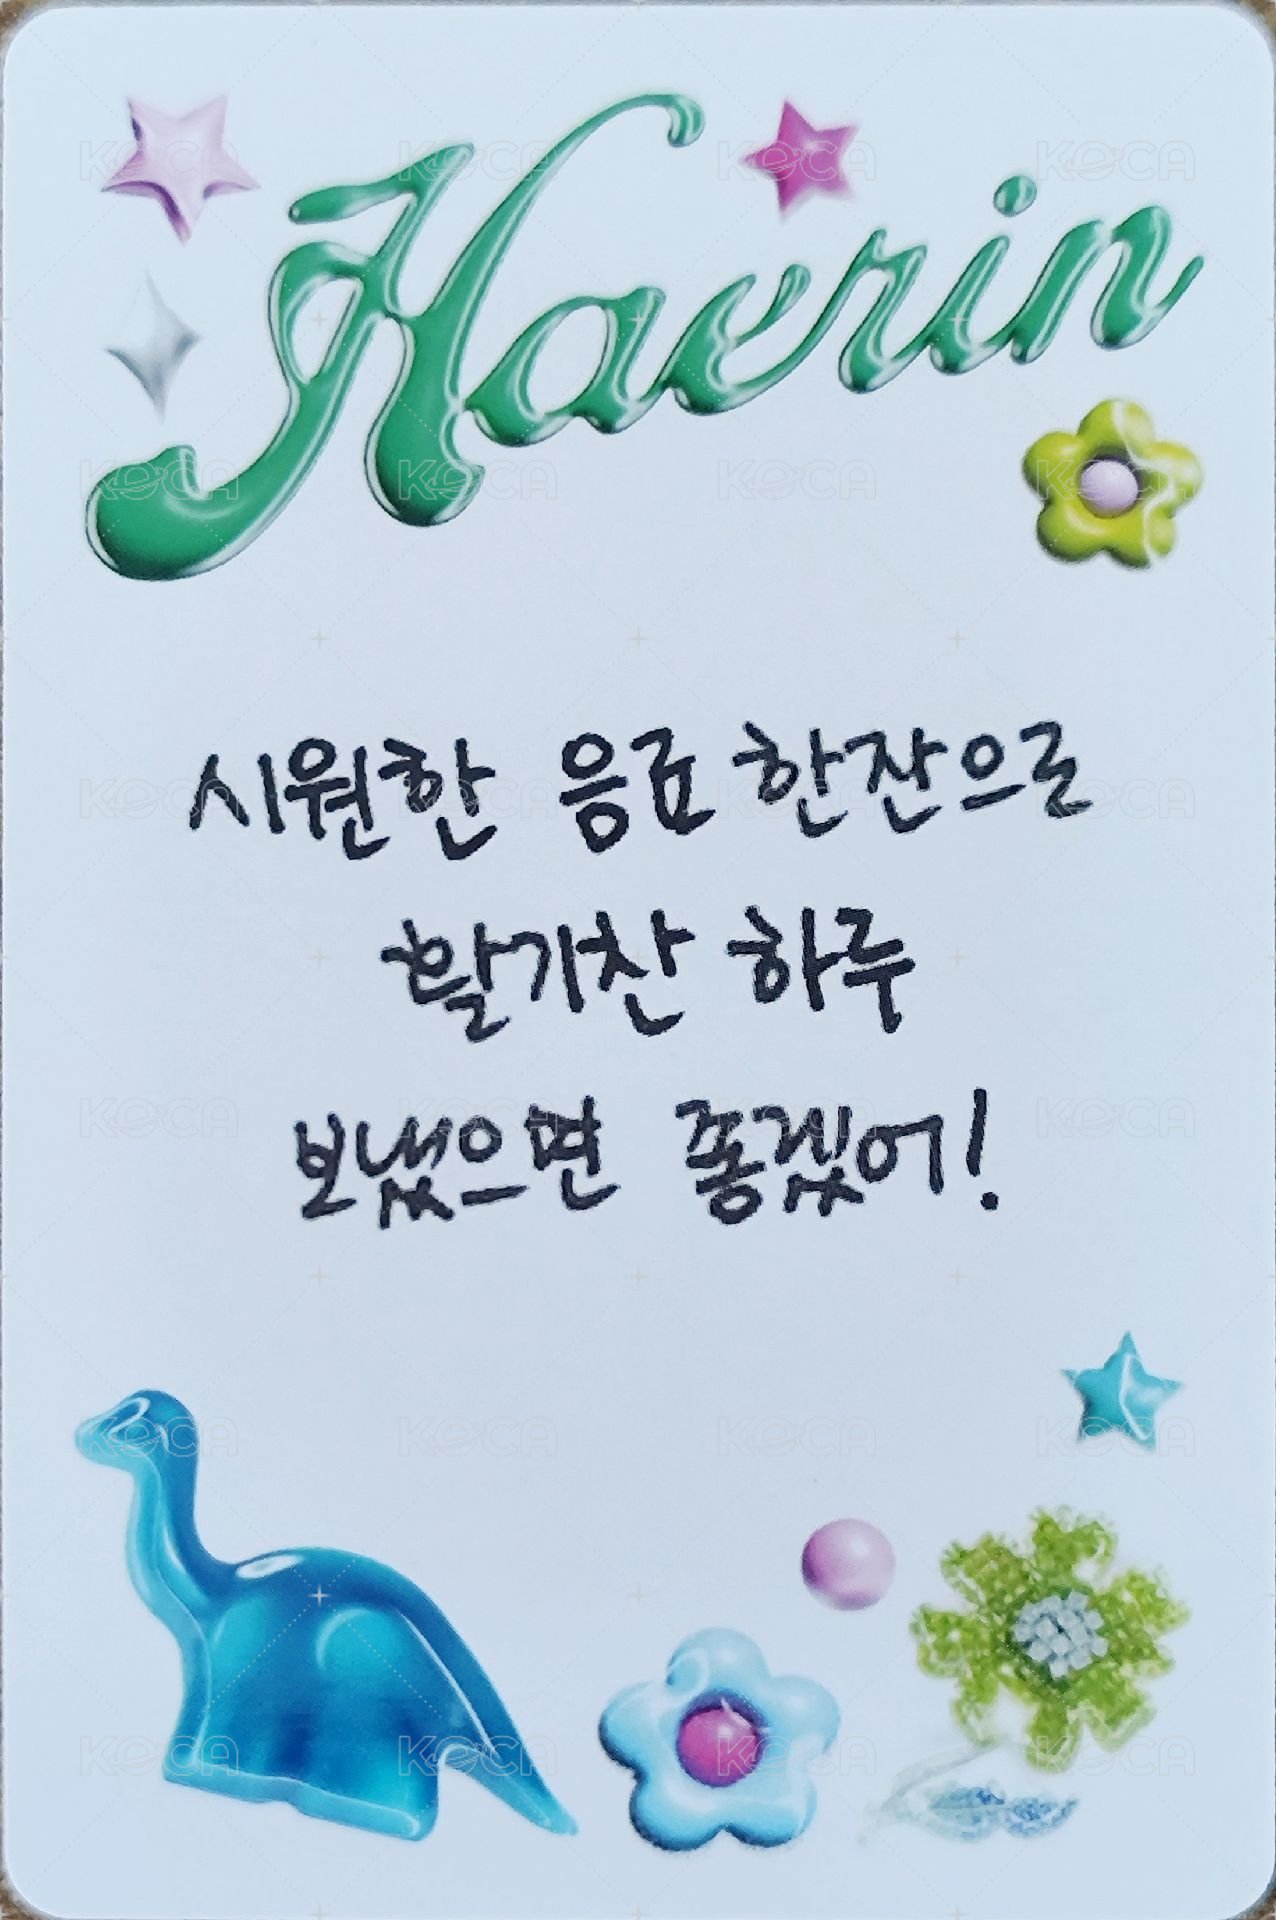 Haerin
시원한 음료 한잔으로
활기찬 하루
보냈으면 좋겠어!
KOCA